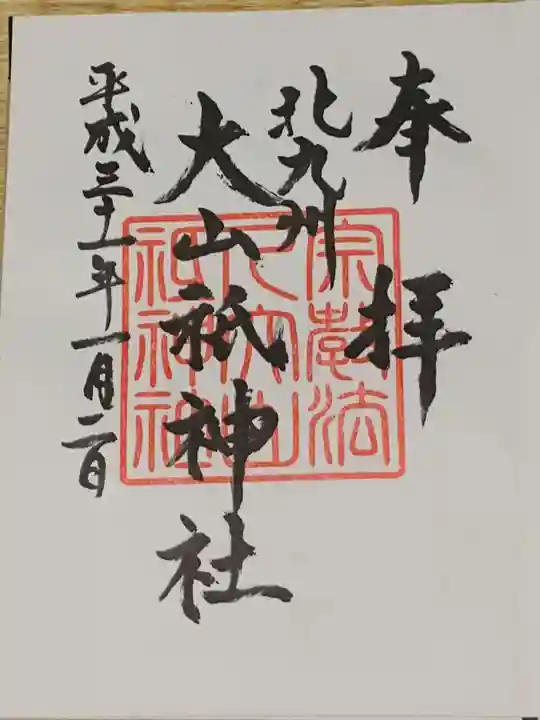 奉拝
北九州
大山祇神社
平成三十一年一月二日
宗教法
人大山
祇神社